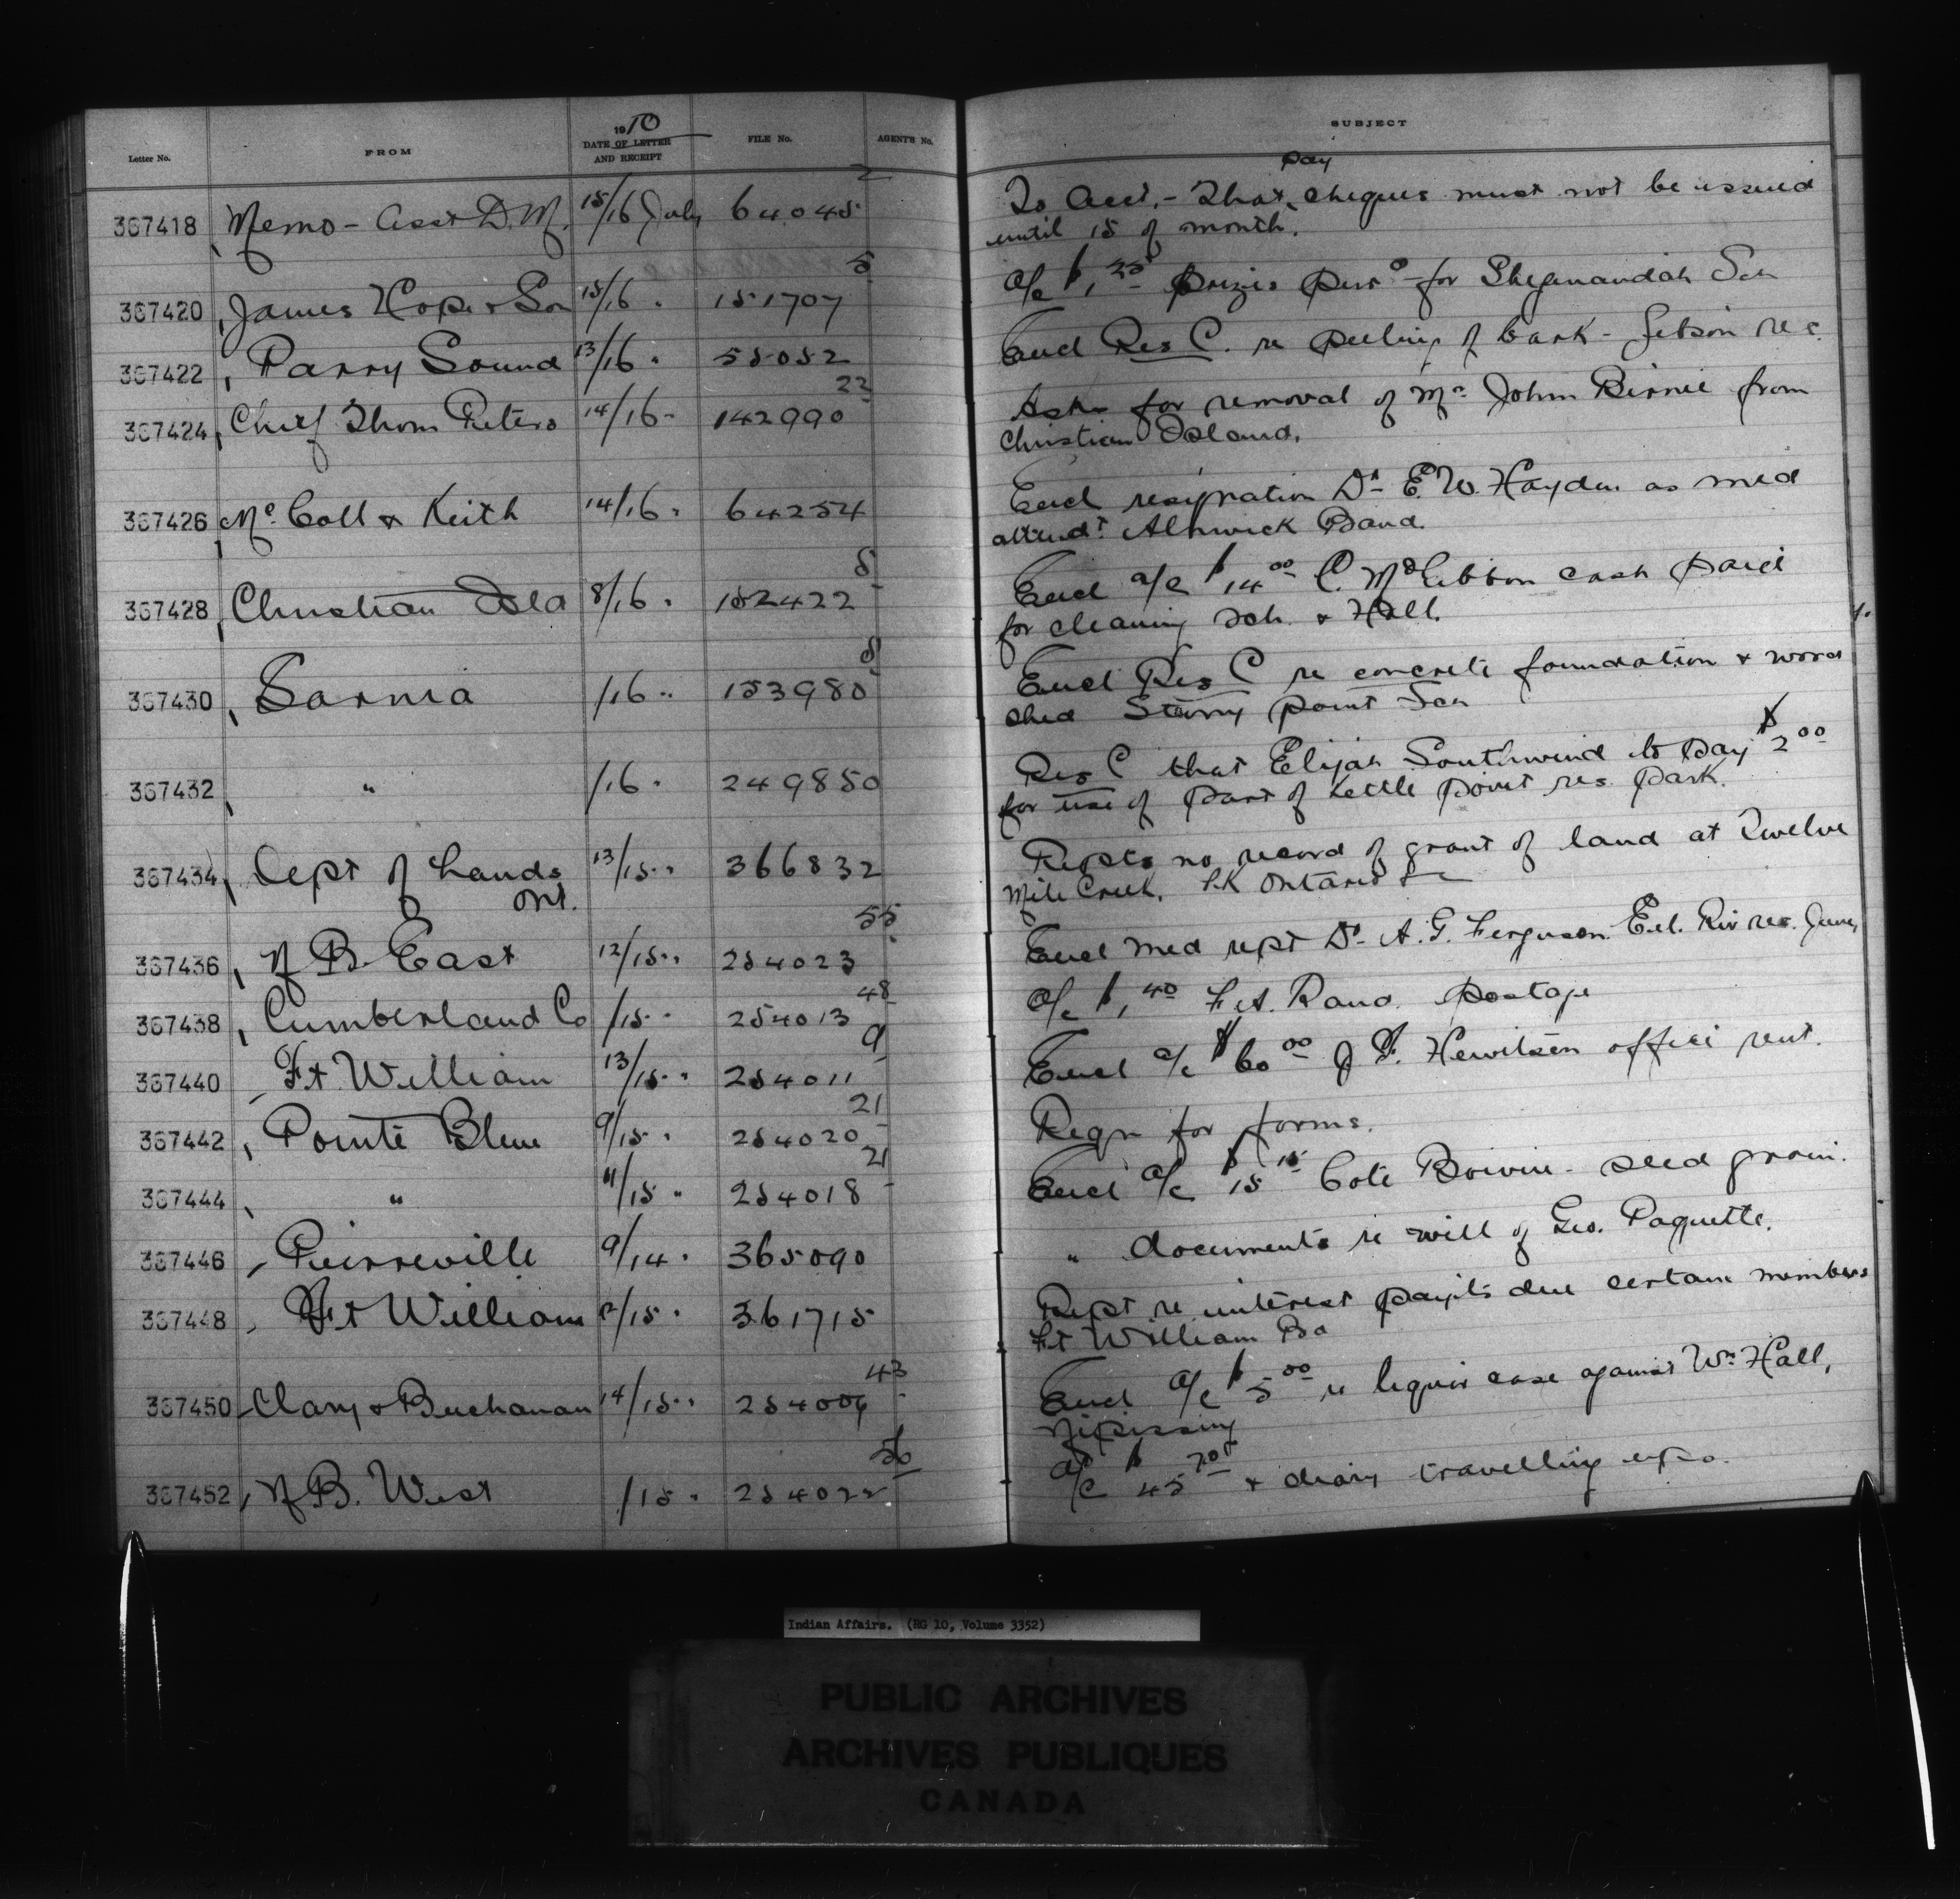 Letter No. FROM 1910 DATE OF LETTER AND RECEIPT FILE No. AGENT'S No. SUBJECT
367418 Memo - Asst D.M. 15/16 July 64045 2 To Acct. - That pay cheques must not be issued
until 15 of month.
367420 James Hope & Son 15/16 " 151707 5 a/c $1.25 prizes for Shegnandah Sch
367422 Parry Sound 13/16 " 55052 Encl Res C. re peeling of bark - Gibson res.
367424 Chief Thom Peters 14/16 " 142990 22 Asks for removal of Mr John Birnie from
Christian Island.
367426 McColl & Keith 14/16 " 64254 Encl resignation Dr E. W. Hayden as med
attendt Alnwick Band.
367428 Christian Isld 8/16 " 152422 5 Encl a/c $14.00 C. McGibbon cash paid
for cleaning sch. & Hall.
367430 Sarnia /16 " 153980 5 Encl Res C re concrete foundation & wood
shed Stony Point Sch
367432 " /16 " 249850 Res C that Elijah Southwind to pay $2.00
for use of part of Kettle Point res. park.
367434 Dept of Lands Ont. 13/15 " 366832 Repts no record of grant of land at Twelve
Mile Creek, Ontario
367436 N B. East 12/15 " 254023 55 Encl med rept Dr A. G. Ferguson Eel Riv res. June,
367438 Cumberland Co /15 " 254013 48 a/c $1.40 F. A. Rand. postage
367440 Ft. William 13/15 " 254011 9 Encl a/c $60.00 J. F. Hewitson office rent.
367442 Pointe Bleue 9/15 " 254020 21 Reqn for forms.
367444 " 11/15 " 254018 21 Encl a/c $15.15 Cote Boivin - seed grain.
367446 Pierreville 9/14 " 365090 " documents re will of Geo. Paquette.
367448 Ft William 12/15 " 361715 Rept re interest paymts due certain members
Ft William Bd
367450 Clary & Buchanan 14/15 " 254006 43 Encl a/c $5.00 re liquor case against Wm Hall,
Nipissing
367452 N B. West /15 " 254022 56 a/c $45.70 & diary travelling exps.
Indian Affairs. (RG 10, Volume 3352)
PUBLIC ARCHIVES
ARCHIVES PUBLIQUES
CANADA